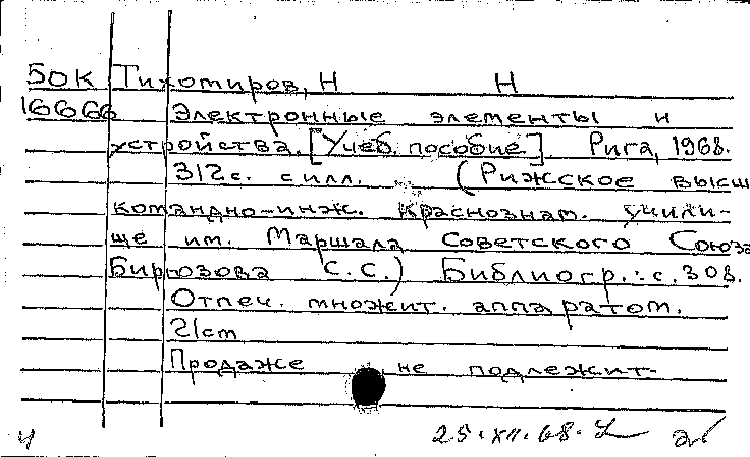 БОК Тихомиров, Н Н
16666 Электронные элементы и
устройства. [Учеб. пособие]. Рига, 1968.
312с. с илл. (Рижское высш
командно-инж. Краснознам. учили-
ще им. Маршала Советского Союза
Бирюзова С.С.) Библиогр.: с. 308.
Отпеч. множит. аппаратом.
21cm
Продаже не подлежит
25.XII.68.